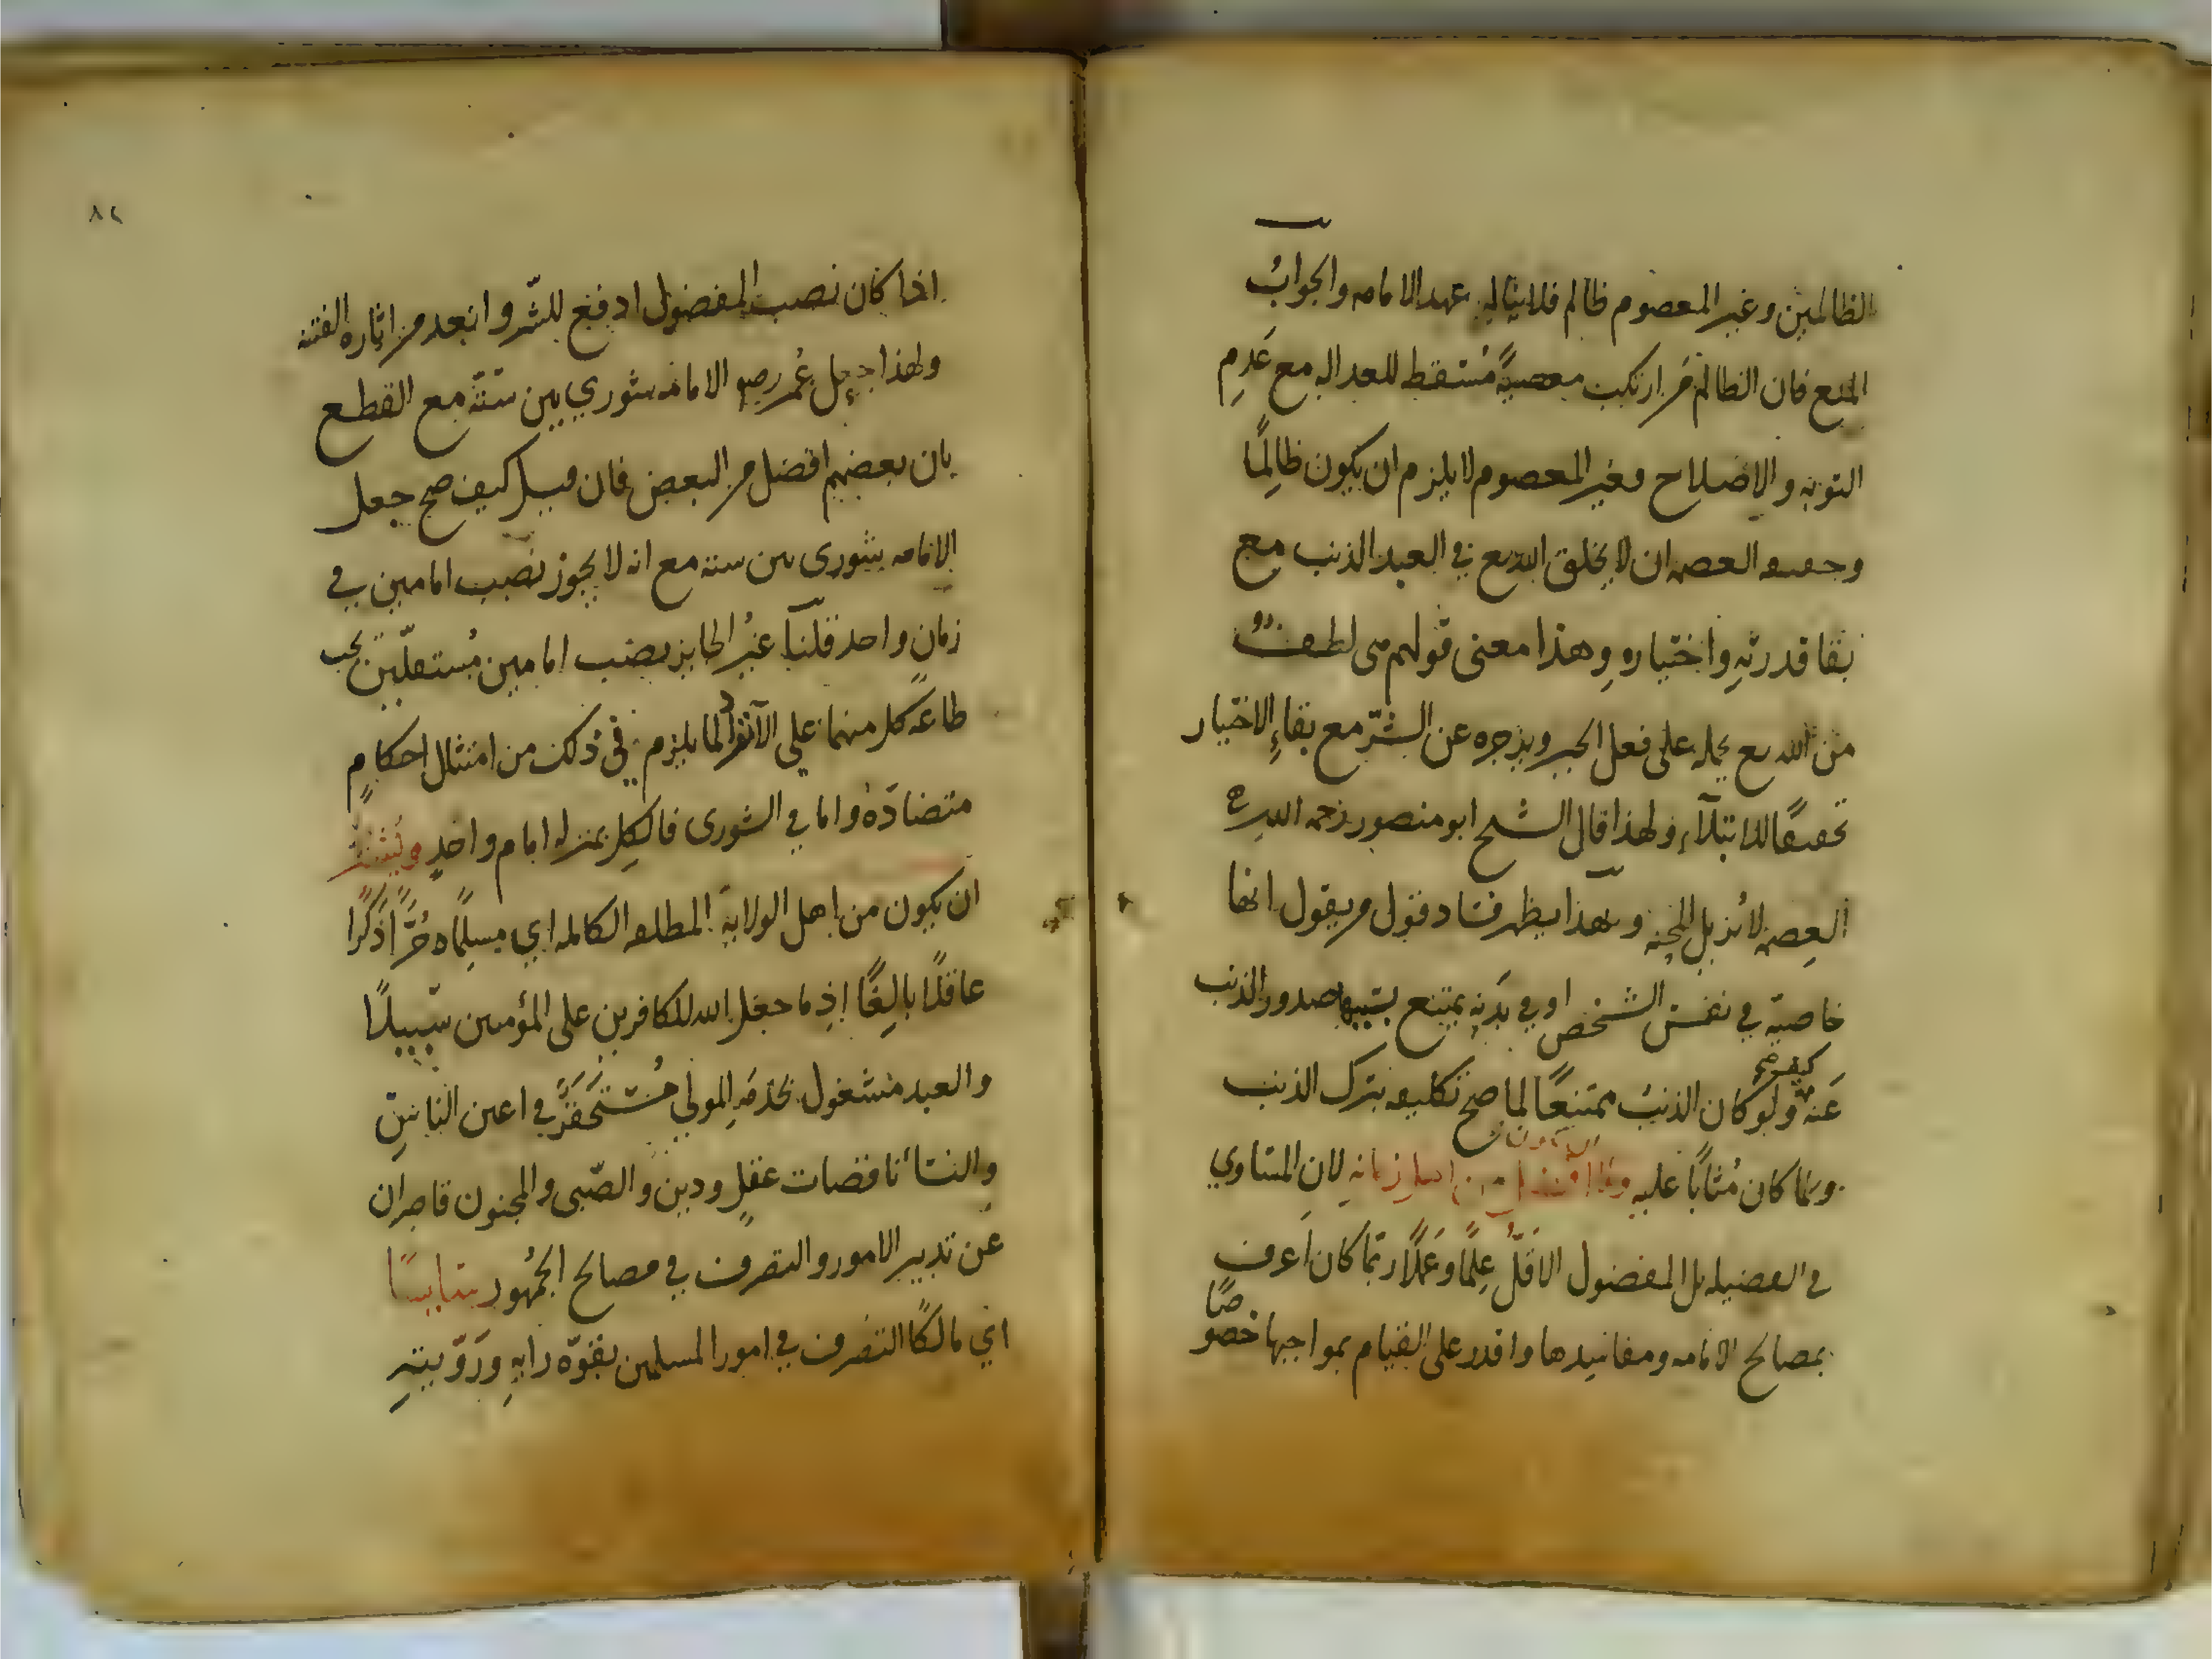 الظالمين وغير المعصوم ظالم فلا يناله عهد الامامه والجوابُ
المنع فان الظالم من ارتكب معصيةً مُسْقطه للعداله مع عَدمِ
التوبه والاصلاح فغير المعصوم لا يلزم ان يكون ظالِمًا
وحقيقه العصمه ان لا يخلق الله تع في العبد الذنب مع
بقا قدرتهِ واختيارهِ وهذا معنى قولهم هى لطفٌ
من الله تع يحمله على فعل الخير ويزجره عن الشرّ مع بقاءِ الاختيار
تحقيقًا للابتلآء ولهذا قال الشيخ ابو منصور رحمه الله
العِصمه لا تُزيل المحنه وبهذا يظهر فساد قول من يقول انها
خاصيّة في نفس الشخص او في بدَنهِ يمتنع بسَببها صدور الذنب
عَنه كيف ولو كان الذنبُ ممتنعًا لما صح تكليفه بترك الذنب
ولما كان مُثابًا عليهِ ولا ان يكون افضل من اهل زمانهِ لان المساوي
في الفضيله بل المفضول الاقَلُّ عِلمًا وعَمَلًا ربّما كان اَعرف
بمصالح الامامه ومفاسِدها واقدر على القيام بمواجبها خصوصًا
٨٢
اذا كان نصب المفضول ادفع للشّر وابعد من اثاره الفتنه
ولهذا جعل عُمر رضي الامامه شوري بين ستّة مع القطع
بان بعضهم افضل من البعض فان قيل كيف صح جعل
الامامه شورى بين سته مع انه لا يجوز نصب امامين في
زمانٍ واحد قلنا غيرُ الجايز نصب امامين مُستقلّين تجب
طاعَه كل منهما على الانفراد لما يلزم في ذلك من امتثال احكامٍ
متضادّة واما في الشورى فالكل بمنزله امام واحدٍ ويُشترط
ان يكون من اهل الولايةِ المطلقه الكامله اي مسلِمًا حُرًّا ذَكَرًا
عاقلًا بالِغًا إذ ما جعل الله للكافرين على المؤمنين سَبيلًا
والعبد مشغول بخدمةِ المولي مُسْتَحقَرٌ في اعين الناسِ
والنسآء ناقصات عقلٍ ودين والصّبى والمجنون قاصران
عن تدبير الامور والتصرف في مصالح الجُمهُور سَايسًا
اي مالكًا التصَرف في امور المسلمين بقوّه رايهِ ورَوّيتهِ